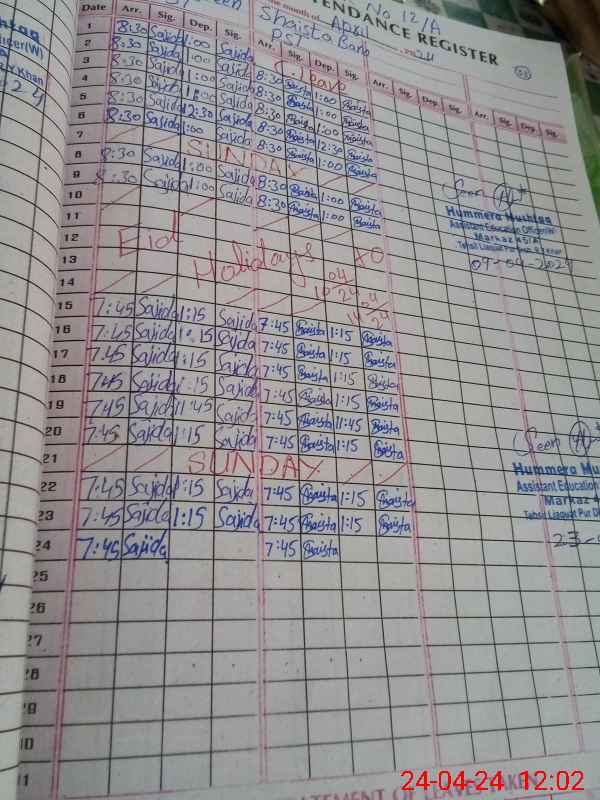 No 12/A
the month of April 2024
ATTENDANCE REGISTER
Shaista Bano
PST
Date Arr. Sig. Dep. Sig. Arr. Sig. Dep. Sig. Arr. Sig. Dep. Sig. Arr. Sig. Dep. Sig.
1 8:30 Sajida 1:00 Sajida
2 8:30 Sajida 1:00 Sajida 8:30 Shaista 1:00 Shaista
3 8:30 Sajida 1:00 Sajida 8:30 Shaista 1:00 Shaista
4 8:30 Sajida 1:00 Sajida 8:30 Shaista 1:00 Shaista
5 8:30 Sajida 12:30 Sajida 8:30 Shaista 12:30 Shaista
6 8:30 Sajida 1:00 Sajida 8:30 Shaista 1:00 Shaista
7 SUNDAY
8 8:30 Sajida 1:00 Sajida 8:30 Shaista 1:00 Shaista
9 8:30 Sajida 1:00 Sajida 8:30 Shaista 1:00 Shaista
10
11
12 Eid
13 Holidays
14
15 7:45 Sajida 1:15 Sajida 7:45 Shaista 1:15 Shaista
16 7:45 Sajida 1:15 Sajida 7:45 Shaista 1:15 Shaista
17 7:45 Sajida 1:15 Sajida 7:45 Shaista 1:15 Shaista
18 7:45 Sajida 1:15 Sajida 7:45 Shaista 1:15 Shaista
19 7:45 Sajida 11:45 Sajida 7:45 Shaista 11:45 Shaista
20 7:45 Sajida 1:15 Sajida 7:45 Shaista 1:15 Shaista
21 SUNDAY
22 7:45 Sajida 1:15 Sajida 7:45 Shaista 1:15 Shaista
23 7:45 Sajida 1:15 Sajida 7:45 Shaista 1:15 Shaista
24 7:45 Sajida 7:45 Shaista
25
26
27
28
29
30
31
Seen
Hummera Mushtaq
Assistant Education Officer(W)
Markaz
09-04-2024
Seen
Hummera Mu
Assistant Education
Markaz
Tehsil Liaquat Pur
23-
STATEMENT OF LEAVES TAKEN
24-04-24 12:02